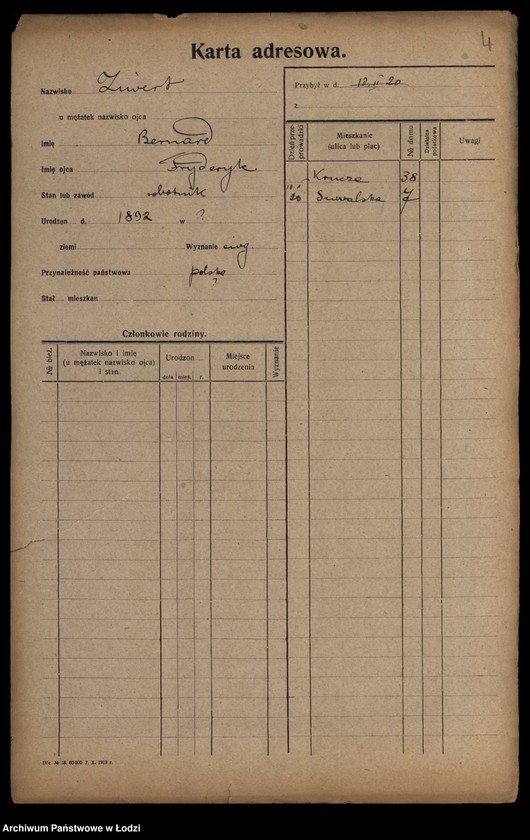 4
Karta adresowa.
Nazwisko Ziwert
u mężatek nazwisko ojca
Imię Bernard
Imię ojca Fryderyk
Stan lub zawód robotnik
Urodzon d. 1892 w ?
ziemi Wyznanie ewg.
Przynależność państwowa polska
?
Stał. mieszkan.
Przybył w d. 12 II 20
z
Dzień przeprowadzki Mieszkanie (ulica lub plac) № domu Dzielnica podatkowa Uwagi
Krucza 38
12.II 20 Suwalska 7
Członkowie rodziny.
№ bież. Nazwisko i imię (u mężatek nazwisko ojca) i stan. Urodzon dnia mies. r. Miejsce urodzenia Wyznanie
IV's № 18. 50.000 7. X. 1919 r.
Archiwum Państwowe w Łodzi